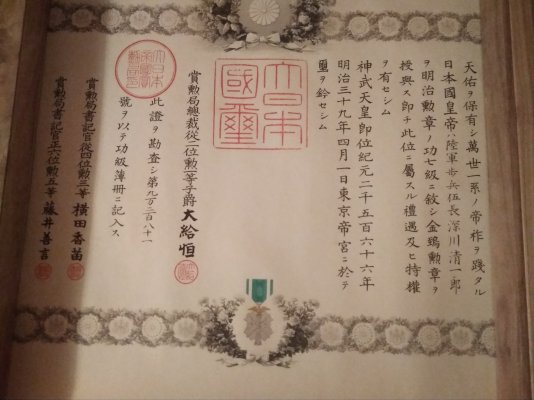 天佑ヲ保有シ萬世一系ノ帝祚ヲ踐タル
日本國皇帝ハ陸軍歩兵伍長深川清一郎
ヲ明治勲章ノ功七級ニ敘シ金鵄勲章ヲ
授與ス即チ此位ニ屬スル禮遇及ヒ特權
ヲ有セシム
神武天皇即位紀元二千五百六十六年
明治三十九年四月一日東京帝宮ニ於テ
璽ヲ鈐セシム
大日本
國璽
賞勲局總裁從二位勲一等子爵大給恒
此證ヲ勘査シ第九万二百八十一
號ヲ以テ功級簿冊ニ記入ス
賞勲局書記官從四位勲三等横田香苗
賞勲局書記官正六位勲五等藤井善言